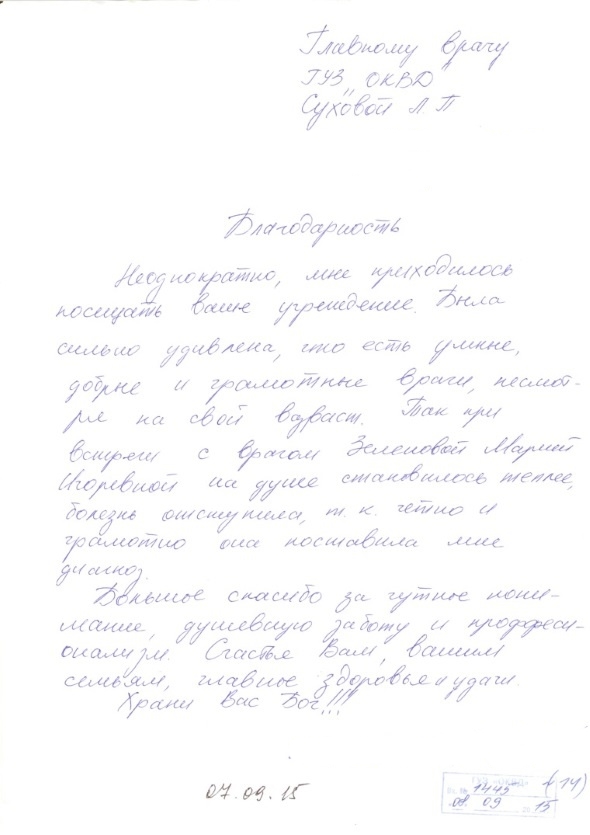 Главному врачу
ГУЗ "ОКВД"
Суховой Л.П
Благодарность
Неоднократно, мне приходилось
посещать ваше учреждение. Была
сильно удивлена, что есть умные,
добрые и грамотные врачи, несмот-
ря на свой возраст. Так при
встречи с врачом Зеленовой Марией
Игоревной на душе становилось теплее,
болезнь отступила, т.к. четко и
грамотно она поставила мне
диагноз.
Большое спасибо за чуткое пони-
мание, душевную заботу и проффеси-
онализм. Счастье Вам, вашим
семьям, главное здоровья и удачи.
Храни Вас Бог!!!
07.09.15
ГУЗ «ОКВД»
Вх. № 1445 (14)
08. 09 2015